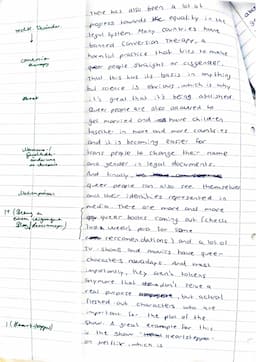 There has also been a lot of
progress towards equality in the
legal system. Many countries have
banned Conversion Therapy, a
harmful practice that tries to make
people straight or cisgender.
That this has its basis in anything
but science is obvious, which is why
it's great that it's being abolished.
Queer people are also allowed to
get married and have children
together in more and more countries
and it is becoming easier for
trans people to change their name
and gender in legal documents.
And finally,
queer people can also see themselves
and their identities represented in
media. There are more and more
queer books coming out (check
last week's post for some
recommendations) and a lot of
TV-shows and movies have queer
characters nowadays. And most
importantly, they aren't tokens
anymore that don't serve a
real purpose, but actual
fleshed out characters who are
important for the plot of the
show. A great example for this
is the show Heartstopper
on Netflix, which is